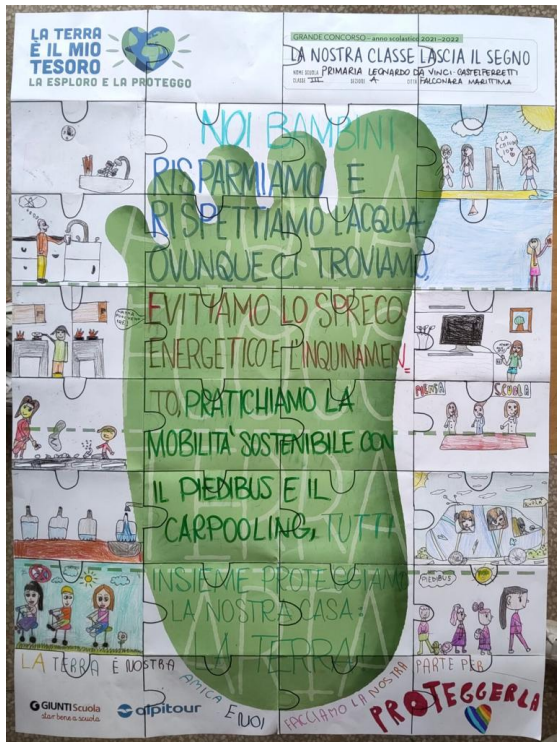 LA TERRA
È IL MIO
TESORO
LA ESPLORO E LA PROTEGGO
GRANDE CONCORSO – anno scolastico 2021–2022
LA NOSTRA CLASSE LASCIA IL SEGNO
NOME SCUOLA PRIMARIA LEONARDO DA VINCI-CASTELFERRETTI
CLASSE III SEZIONE A CITTÀ FALCONARA MARITTIMA
NOI BAMBINI
RISPARMIAMO E
RISPETTIAMO L'ACQUA
OVUNQUE CI TROVIAMO,
EVITIAMO LO SPRECO
ENERGETICO E L'INQUINAMEN
TO, PRATICHIAMO LA
MOBILITÀ SOSTENIBILE CON
IL PIEDIBUS E IL
CARPOOLING, TUTTI
INSIEME PROTEGGIAMO
LA NOSTRA CASA:
LA TERRA!
MENSA SCUOLA
PIEDIBUS
LA TERRA È NOSTRA
AMICA E NOI
FACCIAMO LA NOSTRA
PARTE PER
PROTEGGERLA
GIUNTI Scuola
star bene a scuola
alpitour